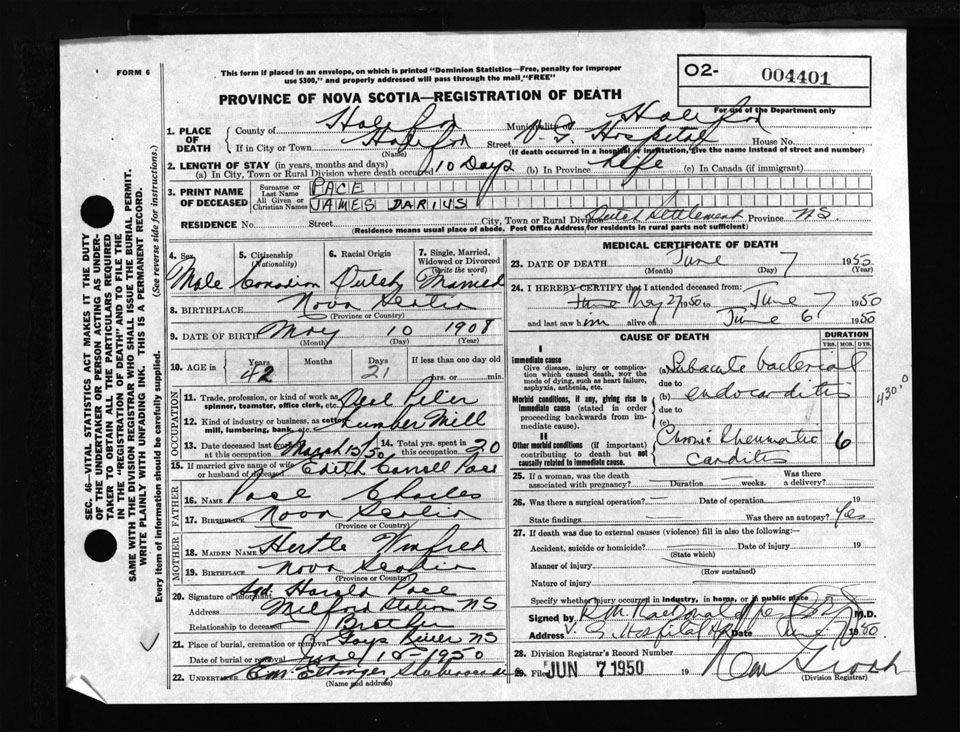 FORM 6
This form if placed in an envelope, on which is printed "Dominion Statistics—Free, penalty for improper
use $300," and properly addressed will pass through the mail "FREE"
O2- 004401
For use of the Department only
PROVINCE OF NOVA SCOTIA—REGISTRATION OF DEATH
1. PLACE OF DEATH
County of Halifax Municipality of Halifax
If in City or Town Halifax Street V. G. Hospital House No.
(Name) (If death occurred in a hospital or institution, give the name instead of street and number)
2. LENGTH OF STAY (in years, months and days)
(a) In City, Town or Rural Division where death occurred 10 Days (b) In Province Life (c) In Canada (if immigrant)
3. PRINT NAME OF DECEASED
Surname or Last Name PACE
All Given or Christian Names JAMES DARIUS
RESIDENCE No. Street City, Town or Rural Division Dutch Settlement Province N.S.
(Residence means usual place of abode. Post Office Address for residents in rural parts not sufficient)
4. Sex 5. Citizenship (Nationality) 6. Racial Origin 7. Single, Married, Widowed or Divorced (write the word)
Male Canadian Dutch Married
8. BIRTHPLACE Nova Scotia
(Province or Country)
9. DATE OF BIRTH May 10 1908
(Month) (Day) (Year)
10. AGE in Years Months Days If less than one day old
42 21 hrs. or min.
OCCUPATION
11. Trade, profession, or kind of work as spinner, teamster, office clerk, etc.
12. Kind of industry or business, as cotton mill, lumbering, bank, etc. Lumber Mill
13. Date deceased last March 15/50 14. Total yrs. spent in 20
15. If married give name of wife or husband of deceased Edith Carroll Pace
FATHER
16. NAME Pace Charles
17. BIRTHPLACE Nova Scotia
(Province or Country)
MOTHER
18. MAIDEN NAME Hertle Winfred
19. BIRTHPLACE Nova Scotia
(Province or Country)
20. Signature of informant Sgd Harold Pace
Address Milford Station NS
Relationship to deceased Brother
21. Place of burial, cremation or removal Gays River NS
Date of burial or removal June 10-1950
22. UNDERTAKER Ettinger Shubenacadie
(Name and address)
MEDICAL CERTIFICATE OF DEATH
23. DATE OF DEATH June 7 1950
(Month) (Day) (Year)
24. I HEREBY CERTIFY that I attended deceased from:
June May 27 1950 to June 7 1950
and last saw him alive on June 6 1950
CAUSE OF DEATH
DURATION
YRS. MOS. DYS.
I
Immediate cause
Give disease, injury or complication which caused death, NOT the mode of dying, such as heart failure, asphyxia, asthenia, etc.
(a) Subacute bacterial
due to
(b) endocarditis
430.0
Morbid conditions, if any, giving rise to immediate cause (stated in order proceeding backwards from immediate cause)
due to
(c)
II
Other morbid conditions (if important) contributing to death but not causally related to immediate cause.
Chronic Rheumatic carditis 6
25. If a woman, was the death associated with pregnancy? Duration weeks. Was there a delivery?
26. Was there a surgical operation? Date of operation 19
State findings Was there an autopsy? Yes
27. If death was due to external causes (violence) fill in also the following:
Accident, suicide or homicide? Date of injury 19
(State which)
Manner of injury
(How sustained)
Nature of injury
Specify whether injury occurred in industry, in home, or in public place
Signed by R.M. MacDonald M.D.
Address V. G. Hospital Hfx Date June 7 1950.
28. Division Registrar's Record Number
29. Filed JUN 7 1950 19
(Division Registrar)
SEC. 46—VITAL STATISTICS ACT MAKES IT THE DUTY
OF THE UNDERTAKER OR PERSON ACTING AS UNDER-
TAKER TO OBTAIN ALL THE PARTICULARS REQUIRED
IN THE "REGISTRATION OF DEATH" AND TO FILE THE
SAME WITH THE DIVISION REGISTRAR WHO SHALL ISSUE THE BURIAL PERMIT.
WRITE PLAINLY WITH UNFADING INK. THIS IS A PERMANENT RECORD.
Every item of information should be carefully supplied. (See reverse side for instructions.)